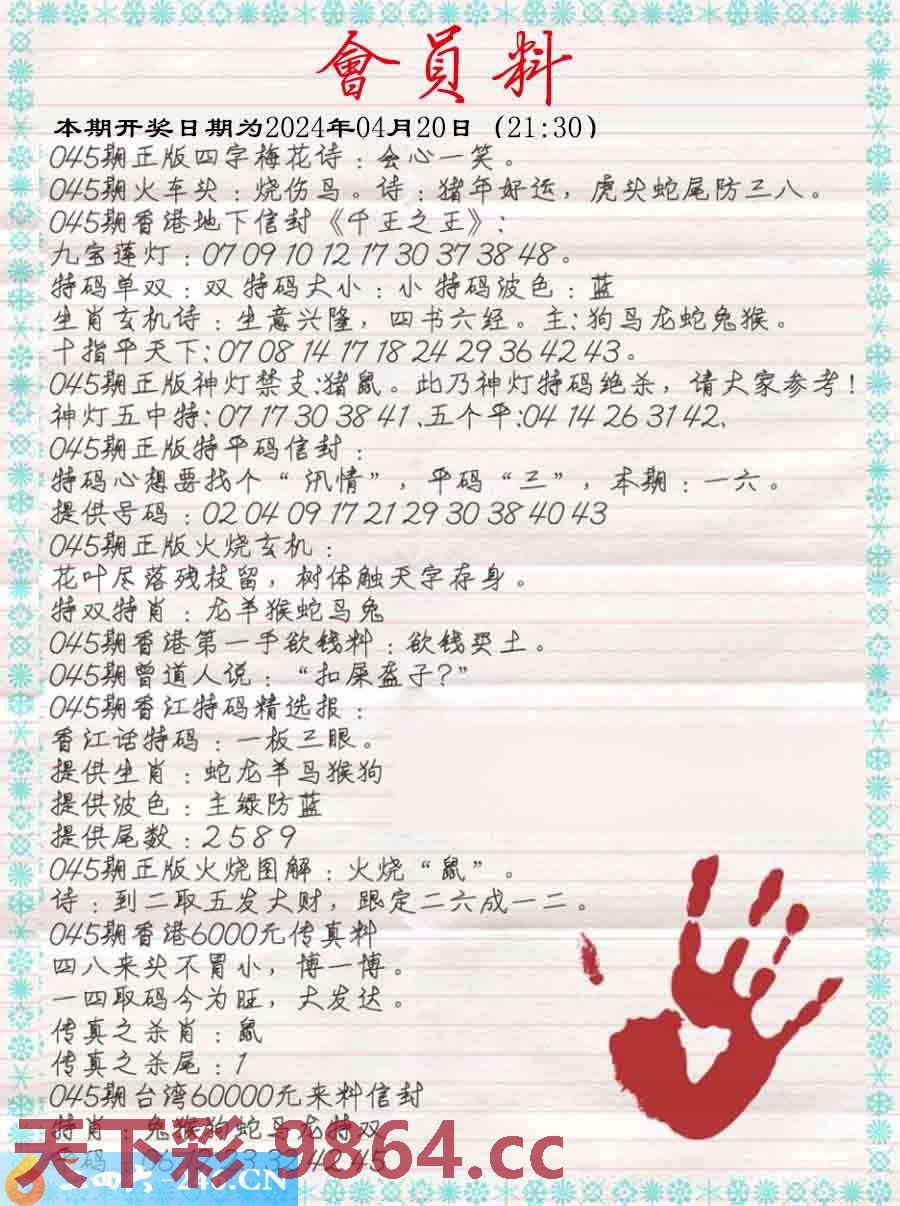 會員料
本期开奖日期为2024年04月20日（21:30）
045期正版四字梅花诗：会心一笑。
045期火车头：烧伤鸟。诗：猪年好运，虎头蛇尾防三八。
045期香港地下信封《千王之王》：
九宝莲灯：07 09 10 12 17 30 37 38 48。
特码单双：双 特码大小：小 特码波色：蓝
生肖玄机诗：生意兴隆，四书六经。主：狗马龙蛇兔猴。
十指平天下：07 08 14 17 18 24 29 36 42 43。
045期正版神灯禁支：猪鼠。此乃神灯特码绝杀，请大家参考！
神灯五中特：07 17 30 38 41、五个平：04 14 26 31 42、
045期正版特平码信封：
特码心想要找个“汛情”，平码“三”，本期：一六。
提供号码：02 04 09 17 21 29 30 38 40 43
045期正版火烧玄机：
花叶尽落残枝留，树体触天字存身。
特双特肖：龙羊猴蛇马兔
045期香港第一手欲钱料：欲钱买土。
045期曾道人说：“扣屎盔子？”
045期香江特码精选报：
香江话特码：一板三眼。
提供生肖：蛇龙羊马猴狗
提供波色：主绿防蓝
提供尾数：2 5 8 9
045期正版火烧图解：火烧“鼠”。
诗：到二取五发大财，跟定二六成一二。
045期香港6000元传真料
四八来头不胃小，博一博。
一四取码今为旺，大发达。
传真之杀肖：鼠
传真之杀尾：1
045期台湾60000元来料信封
特肖：兔猴狗蛇马龙特双
32 42 45
天下彩 9864.cc
246.CN